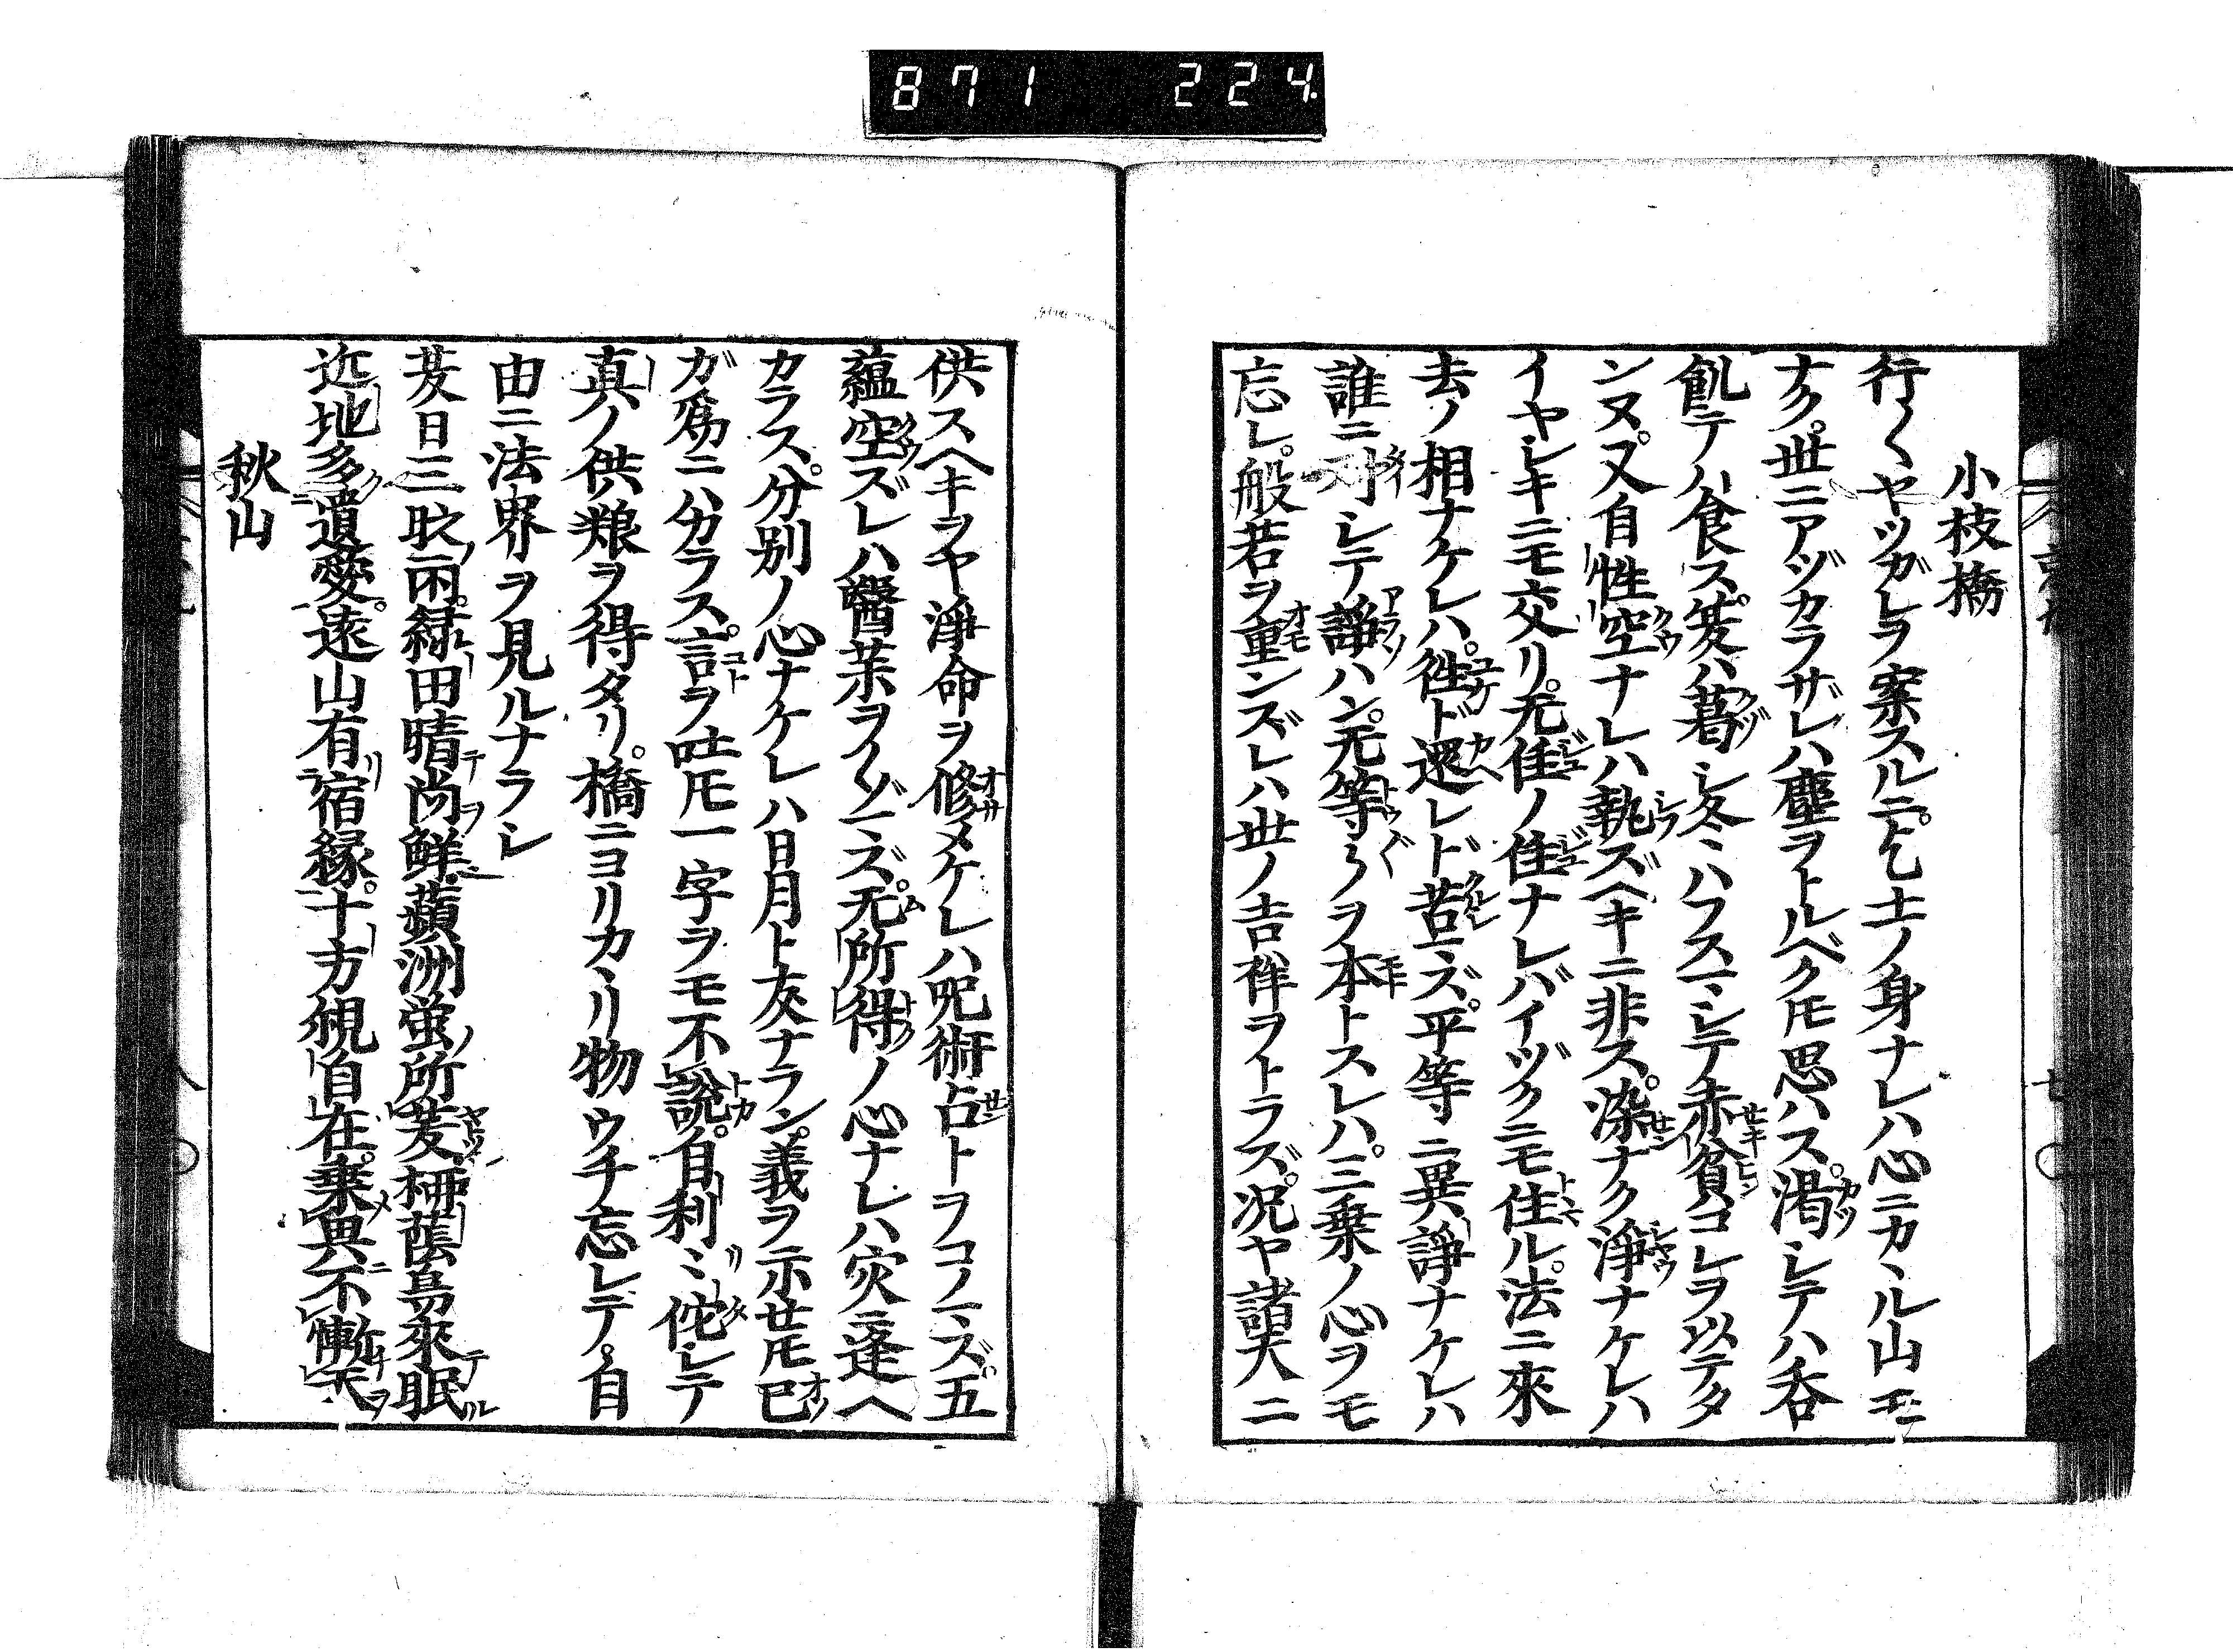 871 224
小枝橋
行〱ヤツガレヲ案スルニ乞士ノ身ナレハ心ニカヽル山モ
ナク。世ニアヅカラザレハ塵ヲトルベクモ思ハス。渇シテハ呑
飢テハ食ス。夏ハ暮シ冬ミハフスマシテ赤貧コレヲ以テタ
ンヌ。又自性空ナレハ執ズヘキニ非ス。染ナク浄ナケレハ
イヤシキニモ交リ。无住ノ住ナレバイヅクニモ住ル。法ニ來
去ノ相ナケレハ。徃ド還レド苦マズ。平等ニ異諍ナケレハ
誰ニ対シテ諍ハン。无等〻ヲ本トスレハ。三乗ノ心ヲモ
忘レ。般若ヲ重ンズレハ世ノ吉祥ヲトラズ。况ヤ諸天ニ
供スヘキヲヤ浄命ヲ修メケレハ呪術占トヲコノマズ。五
蘊空ズレハ醫藥ヲノゾマズ。无所得ノ心ナレハ災ニ逢ヘ
カラス。分別ノ心ナケレハ日月ト友ナラン。義ヲ示セ𪜈己
ガ爲ニハカラス。言ヲ吐𪜈一字ヲモ不説。自利ミ侘シテ
真ノ供粮ヲ得タリ。橋ニヨリカヽリ物ウチ忘レテ。自
由ニ法界ヲ見ルナラシ
夏日三旼雨。緑田晴尚鮮。蘋洲蛍所夏。栁蔭鳥來眠
近地多遺愛。遠山有宿縁。十方親自在。乗興不慚天
秋山